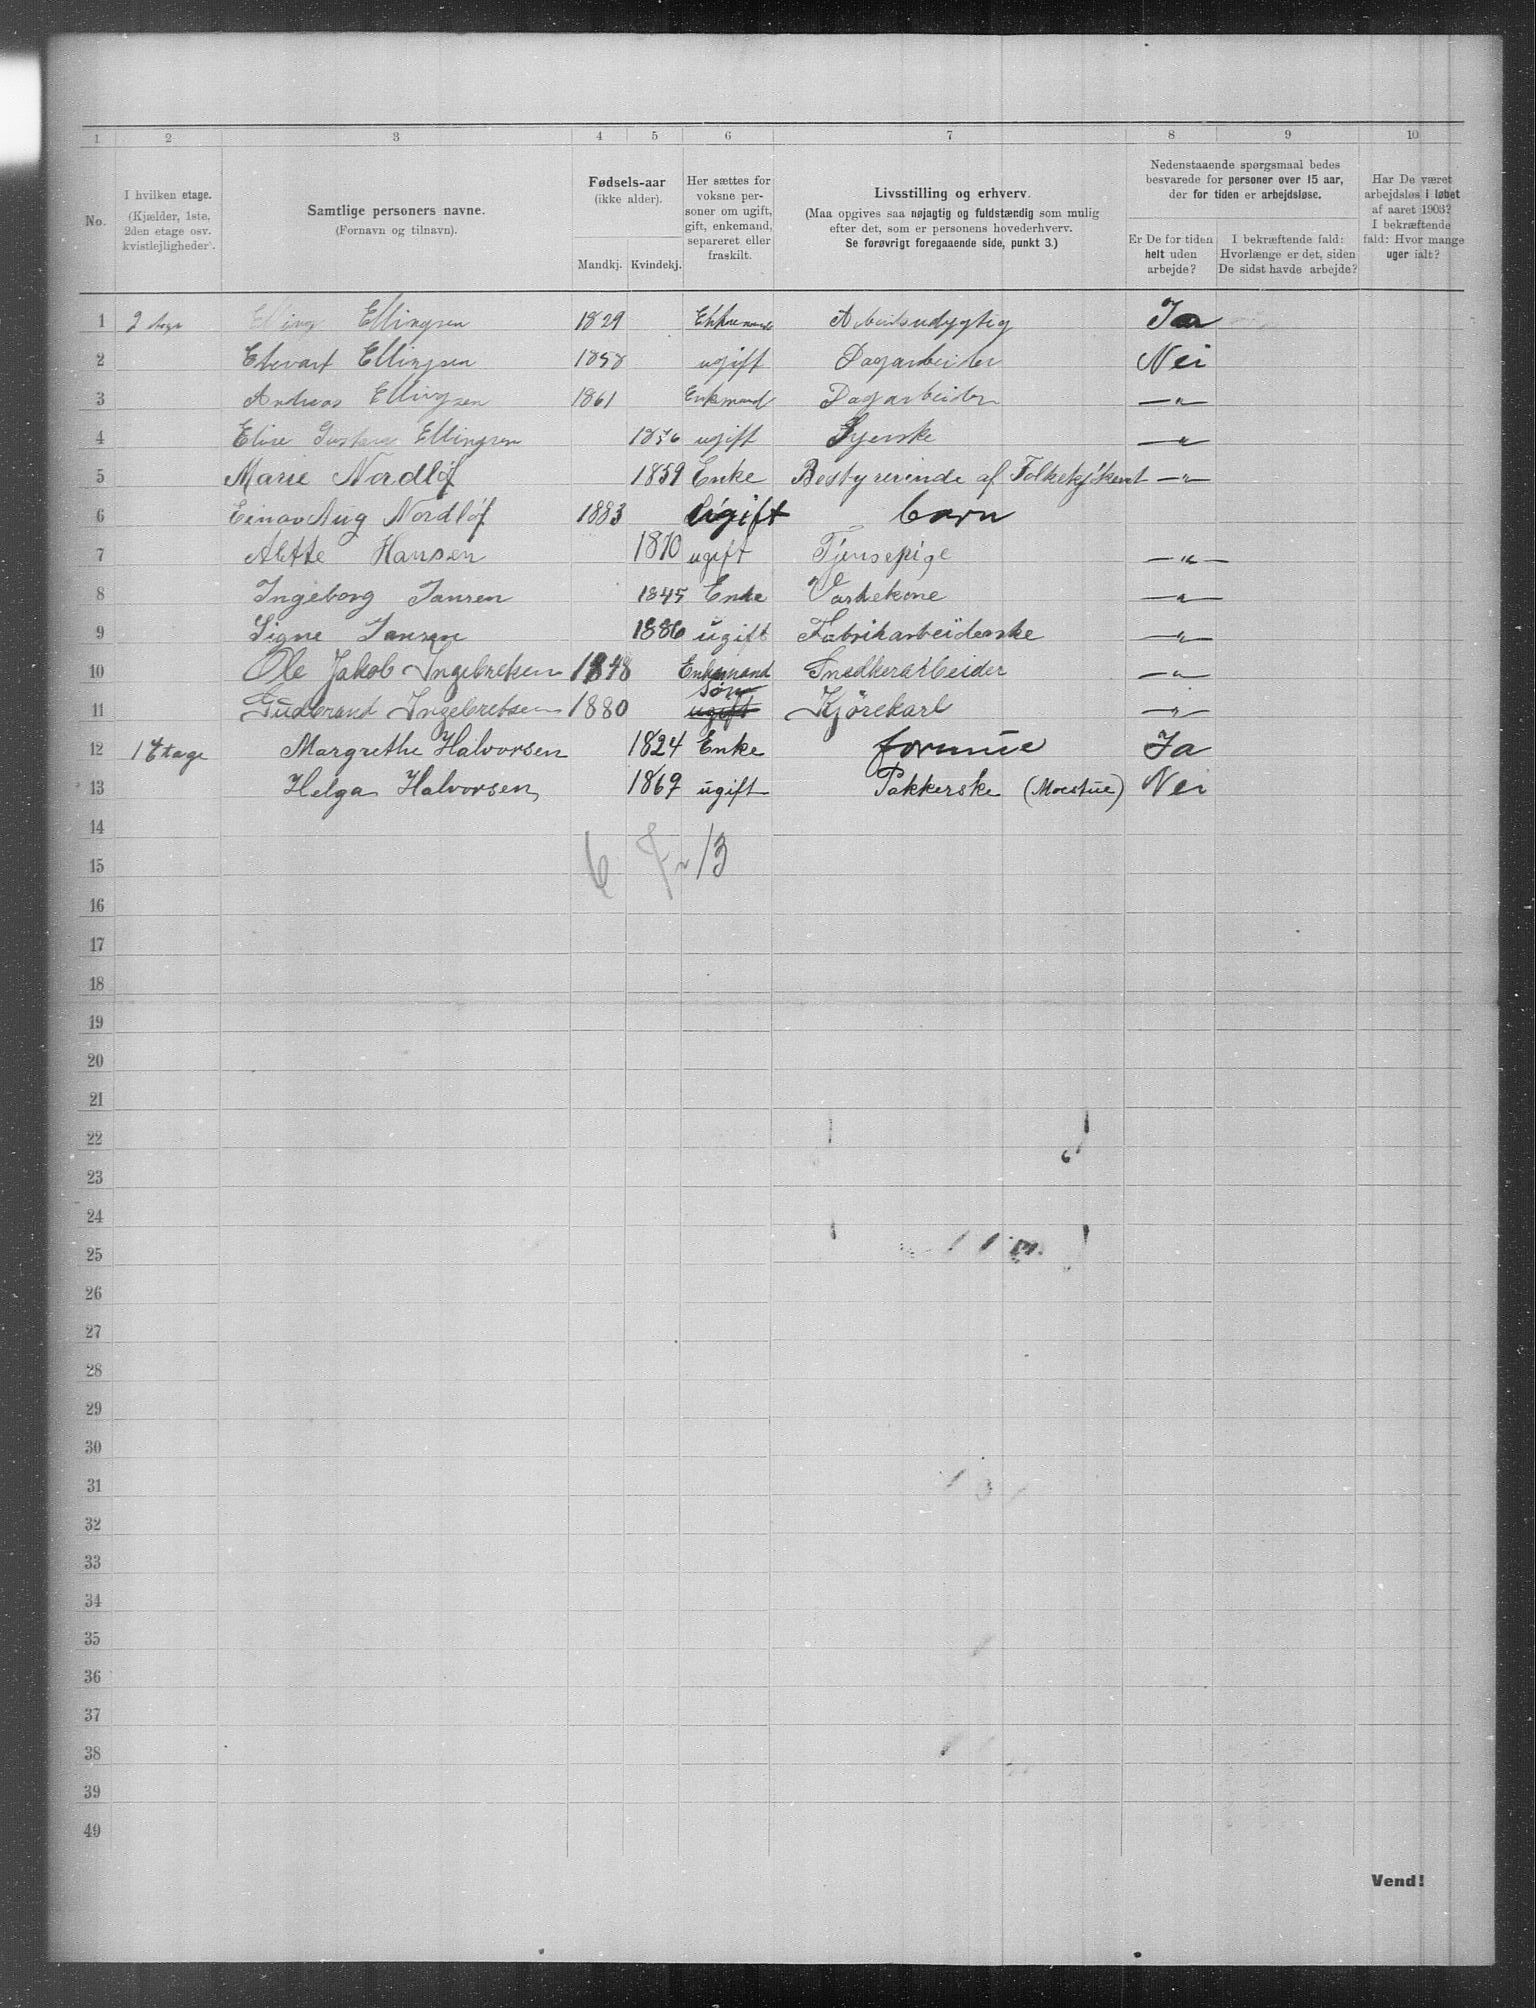 1 2 3 4 5 6 7 8 9 10
No.
I hvilken etage.
(Kjælder, 1ste,
2den etage osv.
kvistlejligheder).
Samtlige personers navne.
(Fornavn og tilnavn).
Fødsels-aar
(ikke alder).
Mandkj. Kvindekj.
Her sættes for
voksne per-
soner om ugift,
gift, enkemand,
separeret eller
fraskilt.
Livsstilling og erhverv.
(Maa opgives saa nøjagtig og fuldstændig som mulig
efter det, som er personens hovederhverv.
Se forøvrigt foregaaende side, punkt 3.)
Nedenstaaende spørgsmaal bedes
besvarede for personer over 15 aar,
der for tiden er arbejdsløse.
Er De for tiden
helt uden
arbejde?
I bekræftende fald:
Hvorlænge er det, siden
De sidst havde arbejde?
Har De været
arbejdsløs i løbet
af aaret 1903?
I bekræftende
fald: Hvor mange
uger ialt?
1 2 Ellingsen 1829 Enkemand Arbeidsudygtig Ja
2 Ellingsen ugift Dagarbeider Nei
3 Andreas Ellingsen 1861 Enkmand Dagarbeider —"—
4 Elise Ellingsen ugift Syerske —"—
5 Marie Nordløf 1859 Enke Bestyrerinde af Folkekjøkent —"—
6 Einar Aug Nordløf 1883 Ugift barn
7 Alette Hansen 1870 ugift Tjensepige —"—
8 Ingeborg Jansen 1845 Enke Vaskekone —"—
9 Signe Jansen 1886 ugift Fabrikarbeiderske —"—
10 Ole Jakob Ingebretsen 1848 Enkemand Snedkerarbeider —"—
11 Gudbrand Ingebretsen 1880 Søn ugift Kjørekarl —"—
12 1 Etage Margrethe Halvorsen 1824 Enke formue Ja
13 Helga Halvorsen 1867 ugift Pakkerske (Moestue) Nei
14
15 6 7 13
16
17
18
19
20
21
22
23
24
25
26
27
28
29
30
31
32
33
34
35
36
37
38
39
40
Vend!